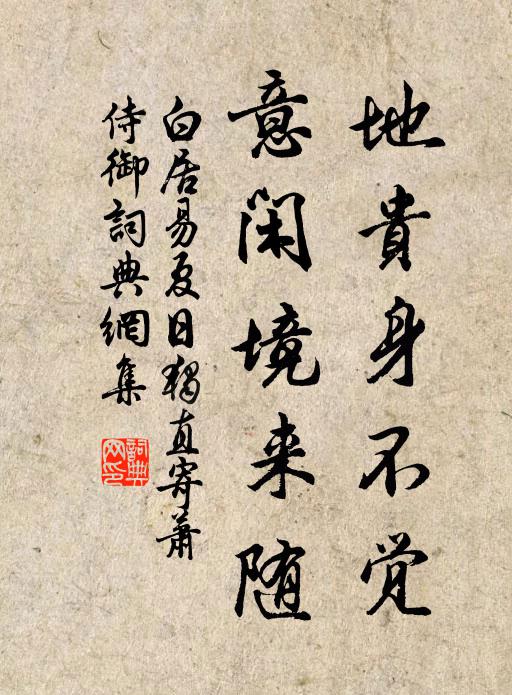 地貴身不觉
意闲境来随
白居易夏日独直寄萧
侍御詞典網集
詞典网印